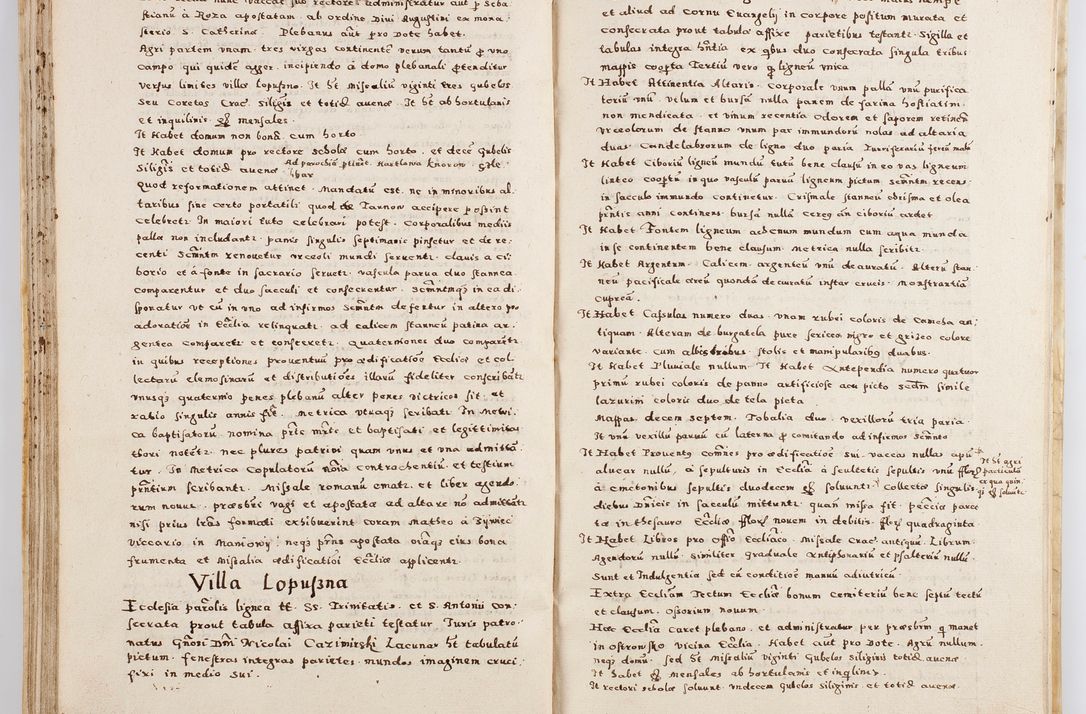 stianū à Roza apostatam ab ordine Divi Augustini ex mona
sterio S. Catherinae Plebanus aut pro Dote habet.
Agri partem vnam tres virgas continentē verum tantū p vno
campo qui quidē agger incipiendo à domo plebanali protenditur
versus limites villae Lopuszno. It ht Missaliū viginti tres gubelos
seu Coretos Crac siliginis et totid auenae It ht ab hortulanis
et inquilinis mensales
It Habet domum non bonā cum horto
It Habet domum pro rectore scholae cum horto et decē Gubelis
Siliginis et totid auenae
Quod reformationem attinet Mandatū est ne in minoribus al
taribus sine certo portatili quod de Tarnow accipere possint
celebret In maiori tuto celebrari potest Corporalibus mediis
palla non includant panis singulis septimanis pinsetur et de re
centi Scmntm renouetur vrceoli mundi seruent clauis a ci
borio et à fonte in sacrario seruet vascula parua duo stannea
comparentur et duo sacculi et consecrentur Scmntmq in ea di
sponatur vt cū in vno ad infirmos Scmntm defertur in altero pro
adoratiōe in Eccliā relinquat ad calicem stanneū patina ar
gentea comparet et consecret Quaterniones duo comparet
in quibus receptiones prouentuū pro ædificatiōe Eccliæ et col
lectarū elemosinarū et distributiōes illarū fideliter conscribāt
vnusq quaternio penes plebanū alter penes victricos sit et
ratio singulis annis fit Metrica vtraq scribat In Metri
ca baptisatorū nomina pris mris et baptisati et legittimita
thori notēt nec plures patrini quam vnus et vna admittā
tur In Metrica Copulatorū noia contrahentiū et testium
pntium scribant Missale romanū emat et liber agendo
rum nouus præsbri vagi et apostatæ ad altare nō admittāt
nisi prius lras formati exhibuerint coram Mattheo à Zywiec
Viccario in Maniowy neq pns apostata viaq eius bona
frumenta et Missalia ædificatiōi Eccliæ applicent
Villa Lopuszna
Ecclesia parolis lignea tt SS. Trinitatis et S. Antonii con
secrata prout tabula affixa parieti testatur Iuris patro
natus Gnosi Dni Nicolai Cazimirski Lacunar ht tabulatū
pictum fenestras integras parietes mundos imaginem cruci
fixi in medio sui
et aliud ad Cornu Euangelij in corpore positum murata et
consecrata prout tabulæ affixæ parietibus testant Sigilla et
tabulas integra hntia ex qbus duo consecrata singula tribus
mappis cooperta Tertiū vero q ligneū vnica
It Habet Attinentia Altaris Corporale vnum palla vnū purifica
toriū vnū velum et bursā nulla panem de farina hostiatim
non mendicata et vinum recentia odorem et saporem retinēn
vrceolorum de stanno vnum par immundorū nolas ad altaria
duas Candelabrorum de ligno duo paria
It Habet Ciboriū ligneū mundū tutū bene clausū in eo vas ligneum
linteo coopertū in quo vasculū paruū ligneum pictum scmntm recens
in sacculo immundo continetur Crismale stanneū chrisma et olea
pntis anni continens bursā nullā cereq an ciborium ardet
It Habet Fontem ligneum aheenum mundum cum aqua munda
in se continentem bene clausum Metrica nulla scribit
It Habet Argentum Calicem argenteū vnū deauratū Alterū stan
neū pacificale æreū quondā deauratū instar crucis Monstrantiā
Cupreā
It Habet Casulas numero duas vnam rubei coloris de Camcha an
tiquam Alteram de burgatela pure sericea nigro et griseo colore
variante cum albis trebus stolis et manipularibus duabus
It Habet Pluuiale nullum It Habet Antependia numero quatuor
primū rubei coloris de panno artificiose acu picto scdm simile
lazurini coloris duo de tela picta
Mappas decem septem Tobalia duo vexillorū tria paria
It vnū vexillū paruū cū laterna p comitando ad infirmos Scmnto
It Habet Prouentq comnes pro ædificatiōe sui vacca nulla apū
aluear nullū à sepulturis in Eccliā à scultetis sepultis vnū flor
à cmetonibus sepultis duodecem gs soluunt Collecta singulis
diebus Dnicis in sacculū mittunt quan missa fit pecciæ parcæ
tæ in thesauro Eccliæ flor nouem in debitis flor quadraginta
It ht agri
particulā
ex qua quin
gs soluitr
It Habet Libros pro Offo Eccliaco Missale Crac antiquū Librum
Agendorū nullū similiter Graduale Antiphonariū et psalteriū nullū
Sunt et Indulgentiæ sed cū conditiōe manuū adiutricū
Extra Eccliam Tectum Eccliæ bonum cemiteriū bene septū tectū
et clausum Ossorium nouum
Hæc Ecclia caret plebano et administratur per præsbrm q manet
in Ostrowsko vicina Ecclia Habet aut pro Dote Agrū nullum
neq domū sed ht Missaliū viginti Gubelos siliginis totid auenæ
It habet gs Mensales ab hortulanis et inqlinis
It rectori scholæ soluunt vndecem gubelos siliginis et totid auenæ